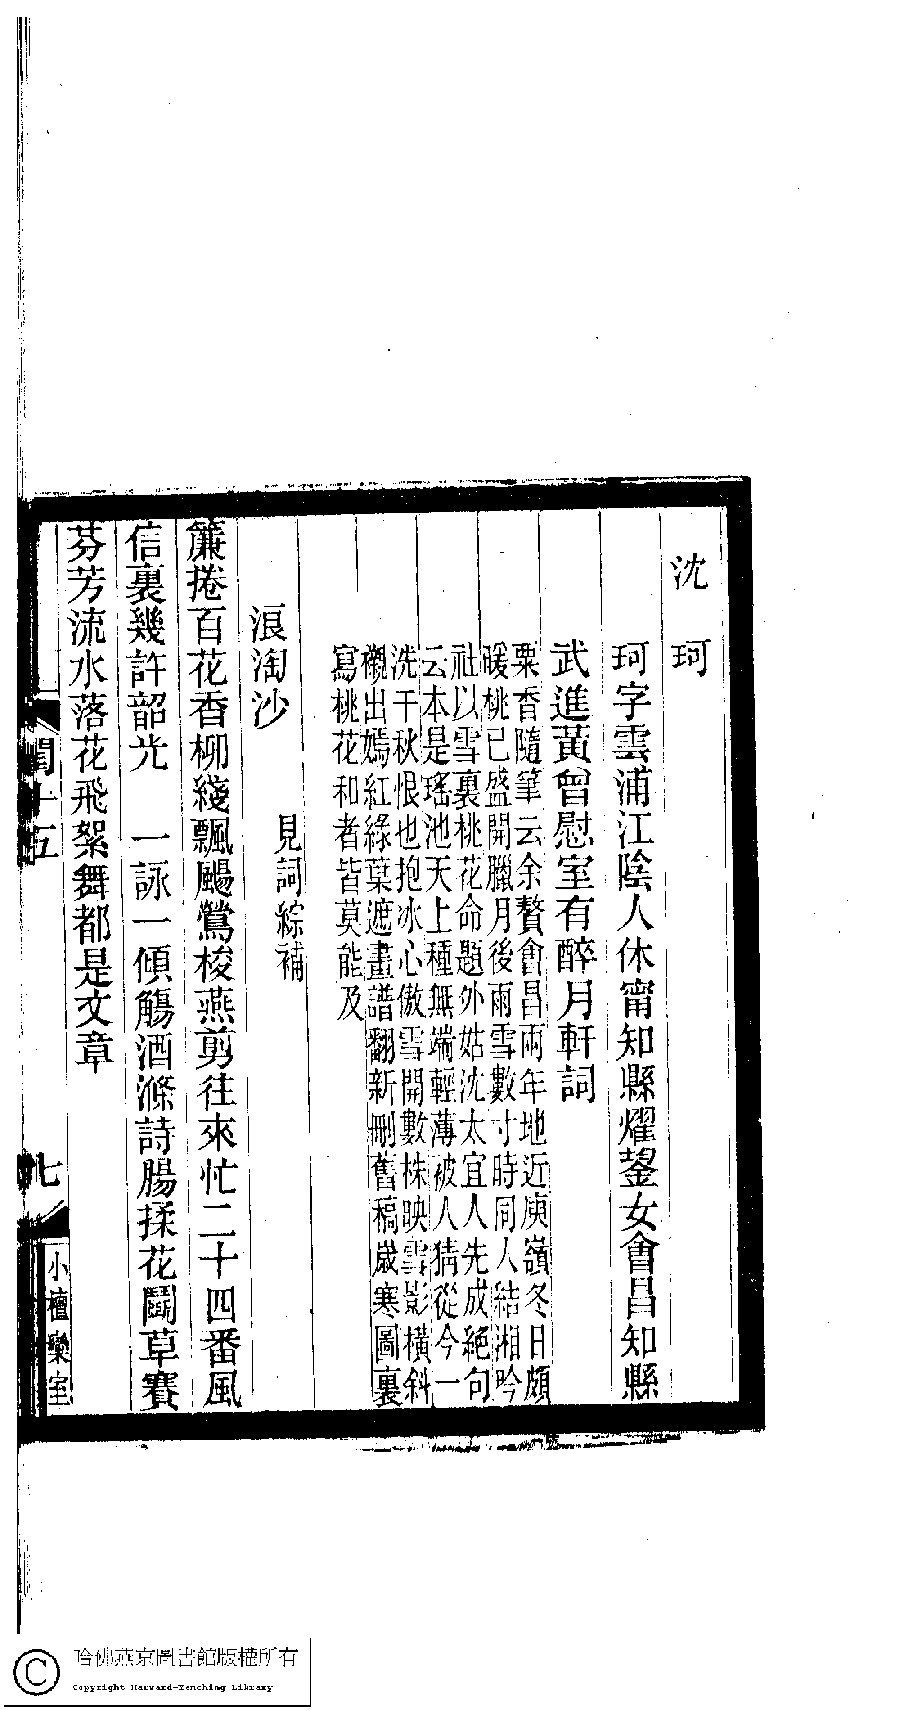 沈　珂
珂字雲浦江陰人休甯知縣燿鋆女會昌知縣
武進黃曾慰室有醉月軒詞
粟香隨筆云余贅會昌兩年地近庾嶺冬日頗
暖桃已盛開臘月後雨雪數寸時同人結湘吟
社以雪裏桃花命題外姑沈太宜人先成絕句
云本是瑤池天上種無端輕薄被人猜從今一
洗千秋恨也抱冰心傲雪開數株映雪影橫斜
襯出嫣紅綠葉遮畫譜翻新刪舊稿歲寒圖裏
寫桃花和者皆莫能及
浪淘沙　見詞綜補
簾捲百花香柳綫飄颺鶯梭燕剪往來忙二十四番風
信裏幾許韶光　一詠一傾觴酒滌詩腸揉花鬬草賽
芬芳流水落花飛絮舞都是文章
閏十五
七
小檀欒室
哈佛燕京圖書館版權所有
Copyright Harvard-Yenching Library